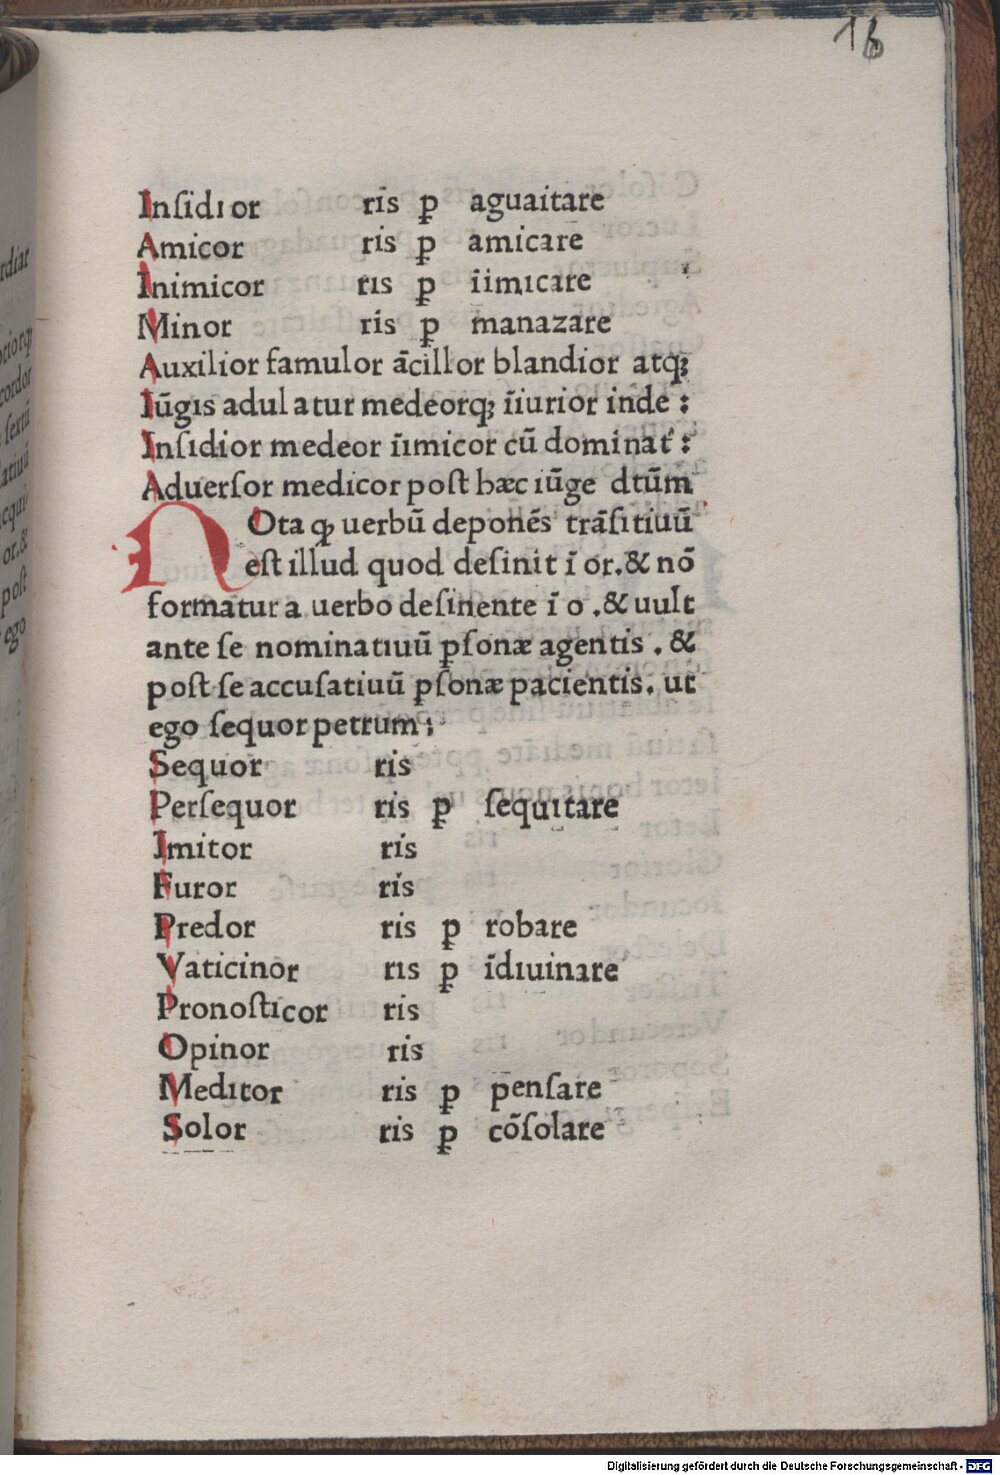 16
Inſidior ris ꝑ aguaitare
Amicor ris ꝑ amicare
Inimicor ris ꝑ iīmicare
Minor ris ꝑ manazare
Auxilior famulor ācillor blandior atqꝫ
Iūgis adulatur medeorqꝫ īiurior inde :
Inſidior medeor iīmicor cū dominat᷑ :
Aduerſor medicor poſt hæc iūge dtūm
NOta ꝙ uerbū deponēs trāſitiuū
eſt illud quod deſinit ī or.& nō
formatur a uerbo deſinente ī o .& uult
ante ſe nominatiuū ꝑſonæ agentis . &
poſt ſe accuſatiuū ꝑſonæ pacientis. ut
ego ſequor petrum :
Sequor ris
Perſequor ris ꝑ ſequitare
Imitor ris
Furor ris
Predor ris ꝑ robare
Vaticinor ris ꝑ īdiuinare
Pronoſticor ris
Opinor ris
Meditor ris ꝑ penſare
Solor ris ꝑ cōſolare
Digitalisierung gefördert durch die Deutsche Forschungsgemeinschaft - DFG